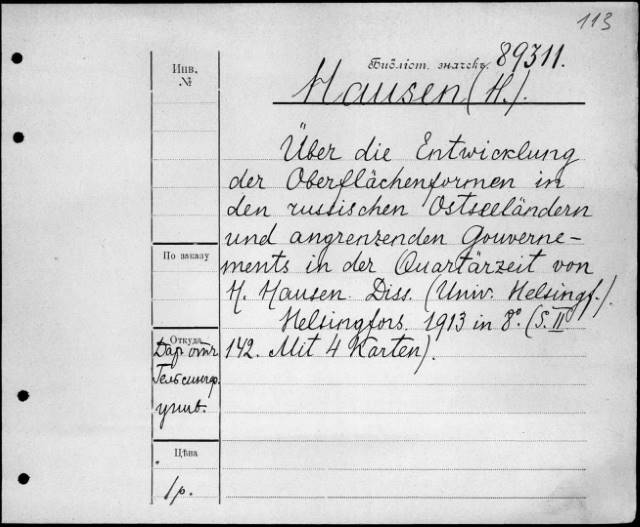 113
Библіот. значекъ. 89311.
Инв.
№
Hausen (H.).
Über die Entwicklung
der Oberflächenformen in
den russischen Ostseeländern
und angrenzenden Gouverne-
ments in der Quartärzeit von
H. Hausen. Diss. (Univ. Helsingf.).
Helsingfors. 1913 in 8º. (S. II
142. Mit 4 Karten).
По заказу
Откуда
Даръ отъ
Гельсингф.
унив.
Цѣна
1 р.